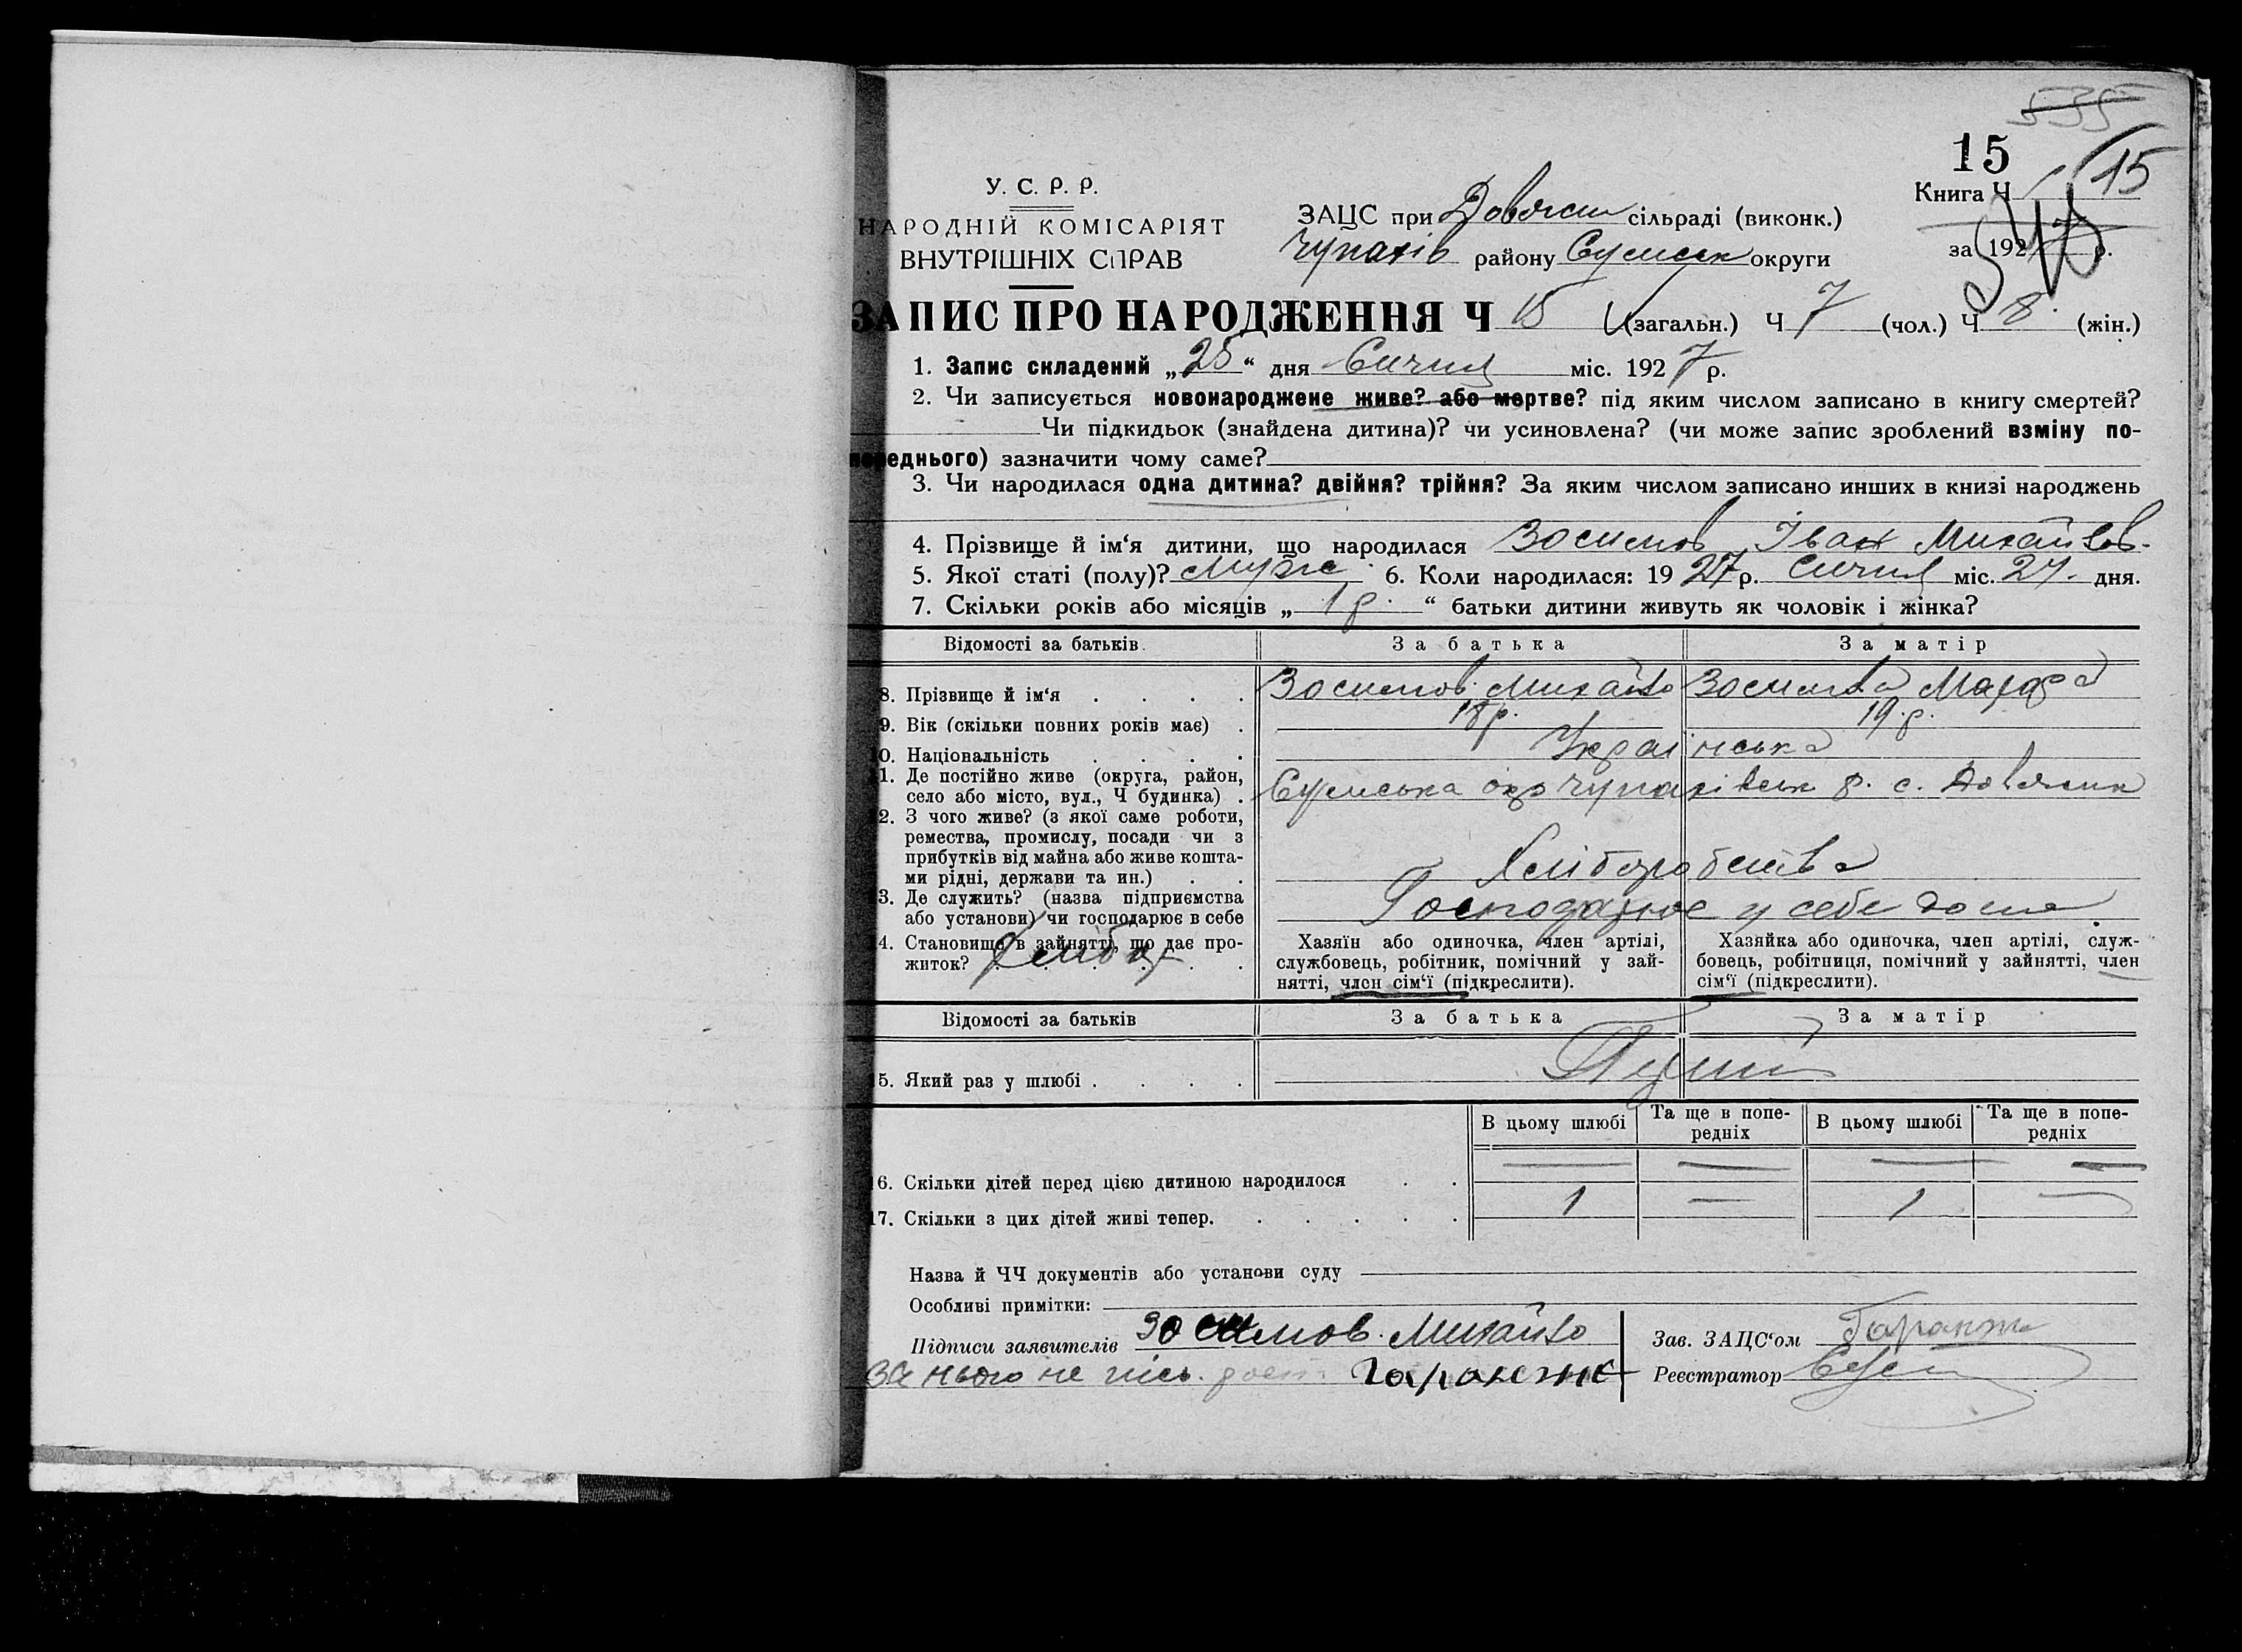 535
15
15
У. С. Р. Р.
НАРОДНІЙ КОМІСАРІЯТ
ВНУТРІШНІХ СПРАВ
ЗАЦС при Довжен сільраді (виконк.)
Чупахів району Сумськ округи
Книга Ч
за 1927 р.
ЗАПИС ПРО НАРОДЖЕННЯ Ч 15 (загальн.) Ч 7 (чол.) Ч 8 (жін.)
1. Запис складений „25“ дня Січня міс. 1927 р.
2. Чи записується новонароджене живе? або мертве? під яким числом записано в книгу смертей?
Чи підкидьок (знайдена дитина)? чи усиновлена? (чи може запис зроблений взміну по-
переднього) зазначити чому саме?
3. Чи народилася одна дитина? двійня? трійня? За яким числом записано инших в книзі народжень
4. Прізвище й ім‘я дитини, що народилася Зосимов Іван Михайлов.
5. Якої статі (полу)? Муж 6. Коли народилася: 1927 р. Січня міс. 24. дня.
7. Скільки років або місяців „ 1 р. “ батьки дитини живуть як чоловік і жінка?
Відомості за батьків. За батька За матір
8. Прізвище й ім‘я . . . . Зосимов Михайло Зосимова Марфа
9. Вік (скільки повних років має) . 18 р. 19 р.
10. Національність . . . . Українська
11. Де постійно живе (округа, район,
село або місто, вул., Ч будинка) . Сумська окр Чупахівськ р. с.
12. З чого живе? (з якої саме роботи,
ремества, промислу, посади чи з
прибутків від майна або живе кошта-
ми рідні, держави та ин.) . . Хліборобства
13. Де служить? (назва підприємства
або установи) чи господарює в себе Господарює у себе дома.
14. Становище в зайнятті, що дає про-
житок? Хлібор
Хазяїн або одиночка, член артілі,
службовець, робітник, помічний у зай-
нятті, член сім‘ї (підкреслити).
Хазяйка або одиночка, член артілі, служ-
бовець, робітниця, помічний у зайнятті, член
сім‘ї (підкреслити).
Відомості за батьків За батька За матір
15. Який раз у шлюбі . . . . Перший
В цьому шлюбі Та ще в попе-редніх В цьому шлюбі Та ще в попе-редніх
16. Скільки дітей перед цією дитиною народилося . . — — — —
17. Скільки з цих дітей живі тепер. . . . . . 1 — 1 —
Назва й ЧЧ документів або установи суду
Особливі примітки:
Підписи заявителів Зосимов. Михайло
Зав. ЗАЦС‘ом
За нього не пись.
Реєстратор